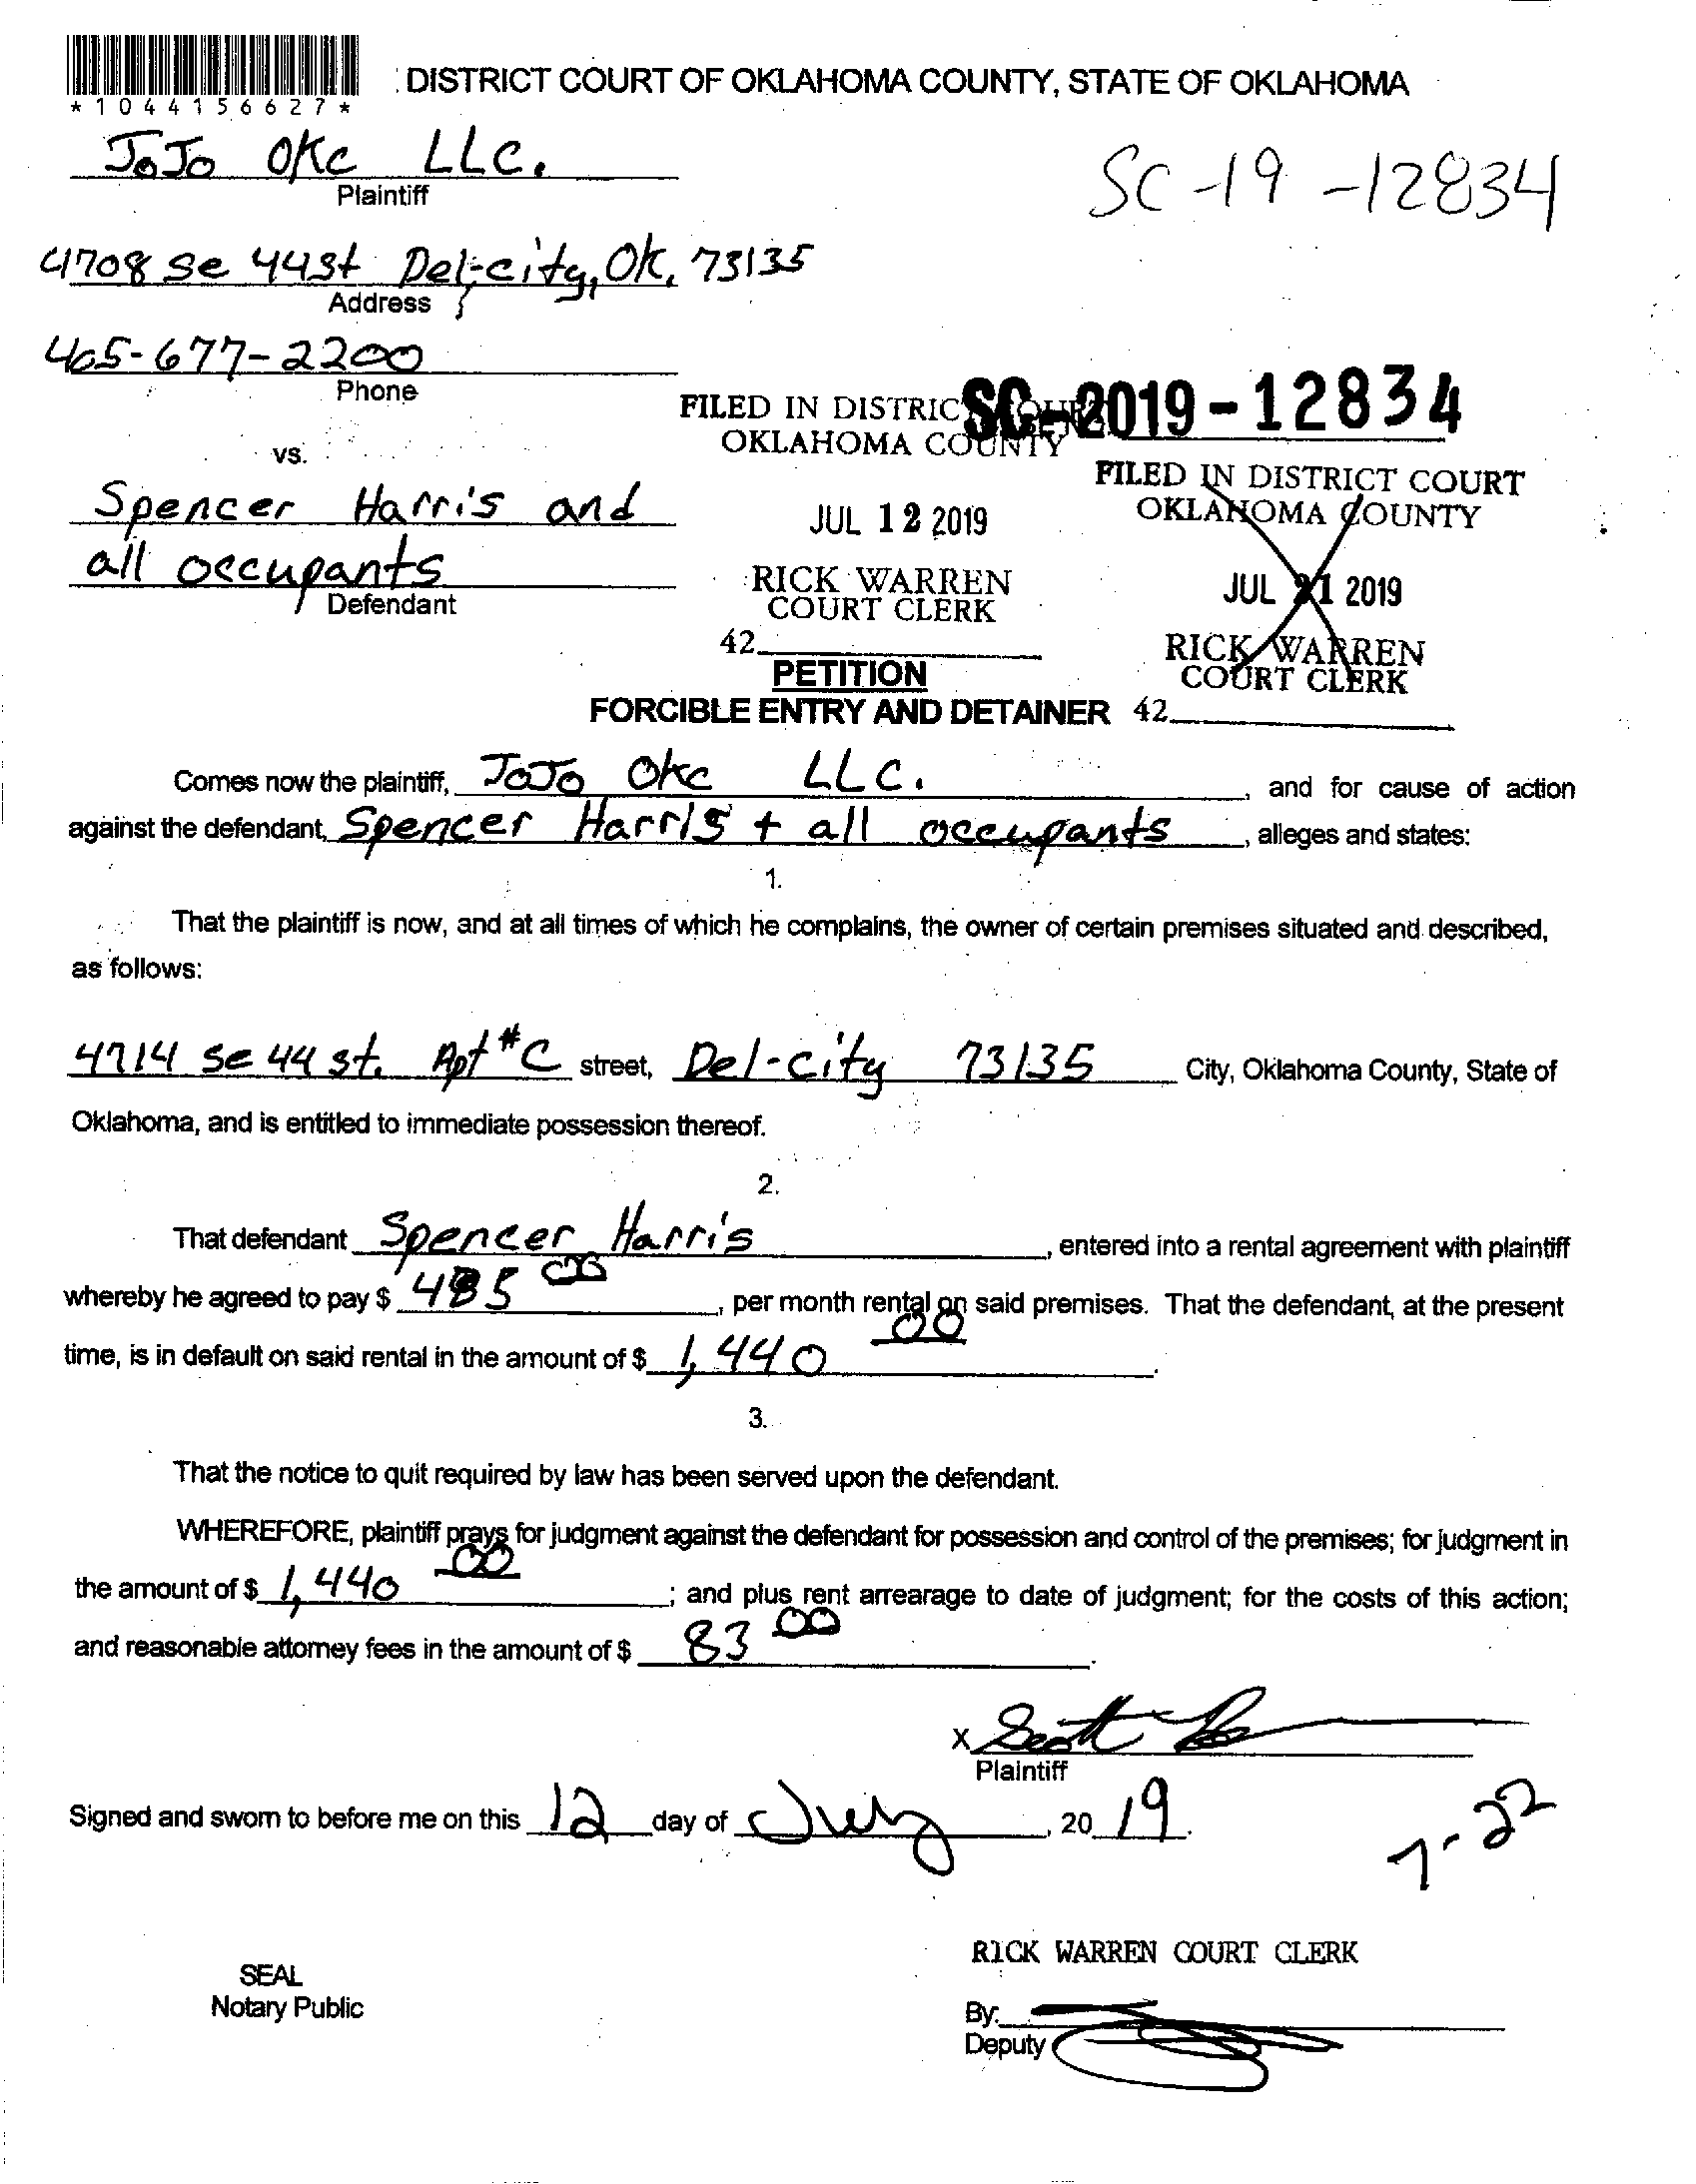 DISTRICT COURT OF OKLAHOMA COUNTY, STATE OF OKLAHOMA
*1044156627*
JoJo OKC LLC.
Plaintiff
SC-19-12834
4708 Se 44st Del-city, OK, 73135
Address
405-677-2200
Phone
SC-2019-12834
FILED IN DISTRICT COURT
OKLAHOMA COUNTY
vs.
FILED IN DISTRICT COURT
OKLAHOMA COUNTY
Spencer Harris and
JUL 12 2019
all occupants
Defendant
RICK WARREN
COURT CLERK
JUL 21 2019
42
RICK WARREN
COURT CLERK
PETITION
FORCIBLE ENTRY AND DETAINER
42
Comes now the plaintiff, JoJo OKC LLC. , and for cause of action
against the defendant, Spencer Harris + all occupants , alleges and states:
1.
That the plaintiff is now, and at all times of which he complains, the owner of certain premises situated and described,
as follows:
4714 Se 44 st. Apt #C street, Del-city 73135 City, Oklahoma County, State of
Oklahoma, and is entitled to immediate possession thereof.
2.
That defendant Spencer Harris , entered into a rental agreement with plaintiff
whereby he agreed to pay $ 485 00 , per month rental on said premises. That the defendant, at the present
time, is in default on said rental in the amount of $ 1,440 00 .
3.
That the notice to quit required by law has been served upon the defendant.
WHEREFORE, plaintiff prays for judgment against the defendant for possession and control of the premises; for judgment in
the amount of $ 1,440 00 ; and plus rent arrearage to date of judgment; for the costs of this action;
and reasonable attorney fees in the amount of $ 83 00 .
X Scott
Plaintiff
Signed and sworn to before me on this 12 day of July , 20 19 .
7-22
RICK WARREN COURT CLERK
SEAL
Notary Public
By:
Deputy